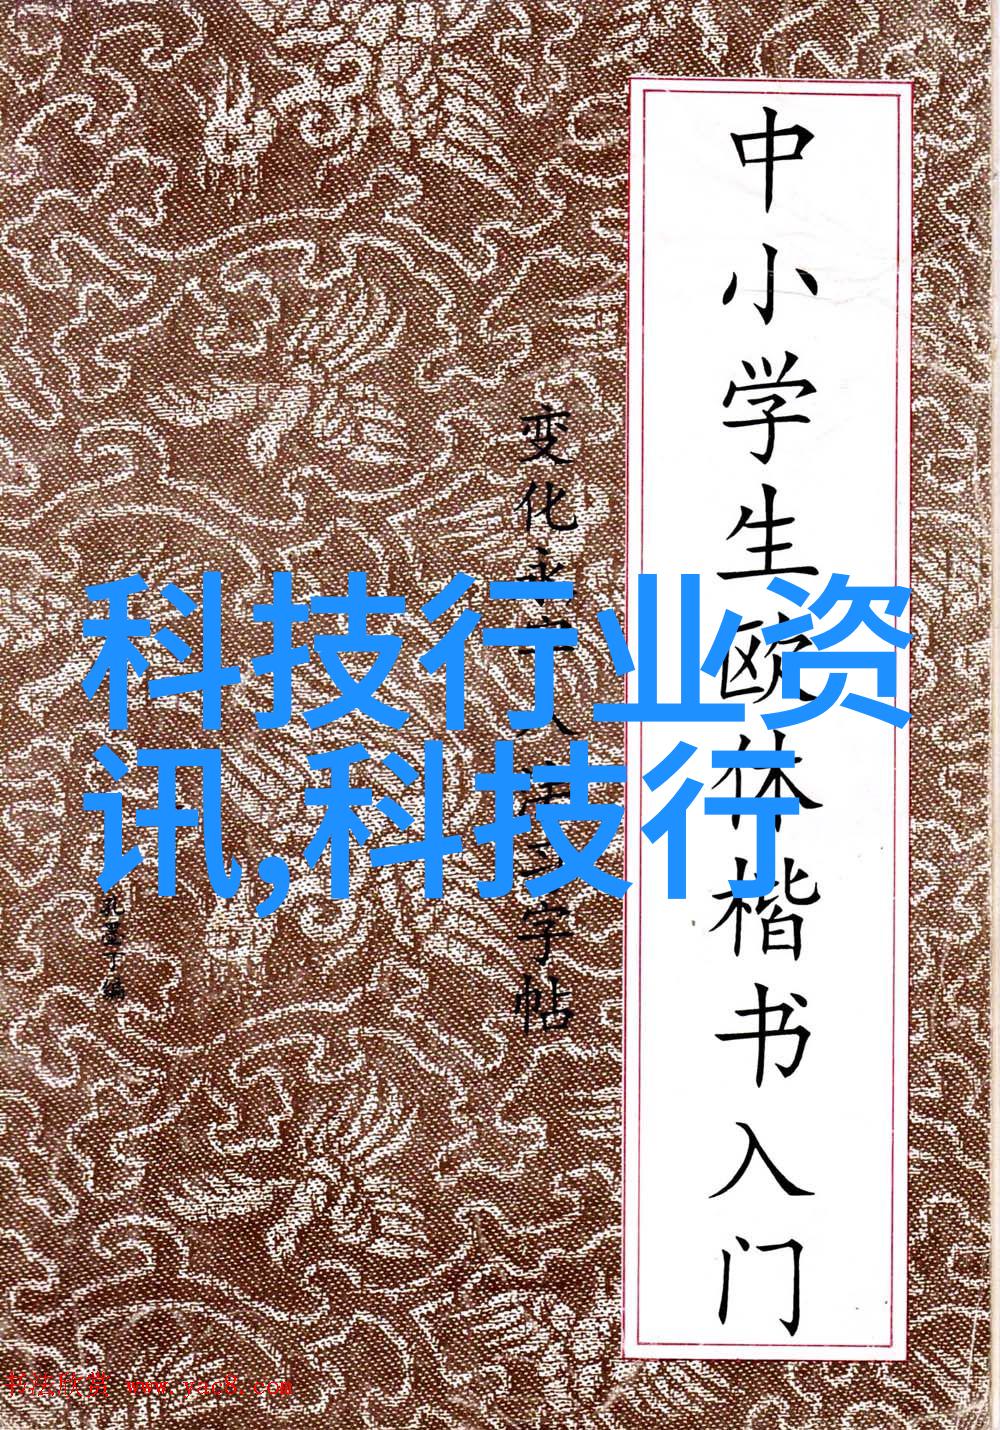 中小学生欧体楷书入门
变化永字八法三字帖
孔墨丁编
科技行业资
讯,科技行
书法欣赏 www.yac8.com